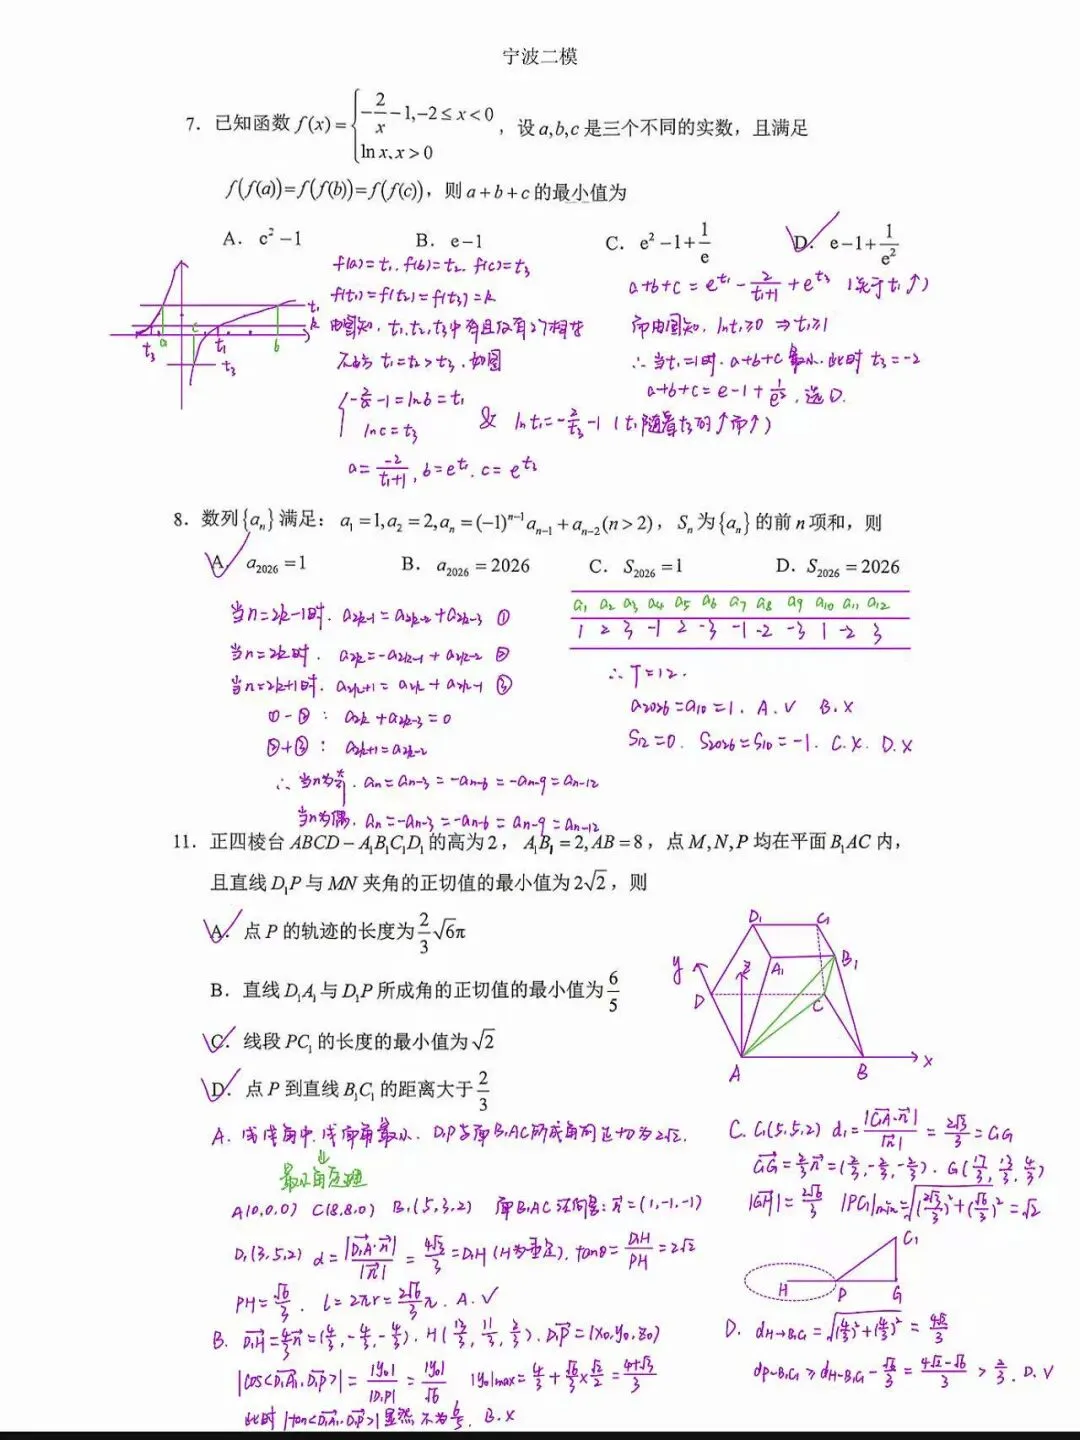 宁波二模
7. 已知函数 f(x)={-2/x-1,-2≤x<0
ln x, x>0 ,设 a,b,c 是三个不同的实数,且满足
f(f(a))=f(f(b))=f(f(c)),则 a+b+c 的最小值为
A. c²-1 B. e-1 C. e²-1+1/e D. e-1+1/e²
f(a)=t₁. f(b)=t₂. f(c)=t₃
f(t₁)=f(t₂)=f(t₃)=k
由图知. t₁,t₂,t₃中有且仅有2个相等
不妨 t₁=t₂>t₃. 如图
{-2/a-1=lnb=t₁
lnc=t₃
& lnt₁=-2/t₃-1 (t₁随着t₃的↑而↑)
a=-2/(t₁+1), b=e^t₁. c=e^t₃
a+b+c=e^t₁-2/(t₁+1)+e^t₃ (关于t₁↑)
而由图知. lnt₁≥0 ⇒t₁≥1
∴当t₁=1时. a+b+c最小. 此时 t₃=-2
a+b+c=e-1+1/e². 选D.
t₁
k
t₃ a c t₁ b
t₃
8. 数列{aₙ}满足: a₁=1,a₂=2,aₙ=(-1)ⁿ⁻¹aₙ₋₁+aₙ₋₂(n>2), Sₙ为{aₙ}的前n项和,则
A. a₂₀₂₆=1 B. a₂₀₂₆=2026 C. S₂₀₂₆=1 D. S₂₀₂₆=2026
当n=2k-1时. a₂ₖ₋₁=a₂ₖ₋₂+a₂ₖ₋₃ ①
当n=2k时. a₂ₖ=-a₂ₖ₋₁+a₂ₖ₋₂ ②
当n=2k+1时. a₂ₖ₊₁=a₂ₖ+a₂ₖ₋₁ ③
①-②: a₂ₖ+a₂ₖ₋₃=0
②+③: a₂ₖ₊₁=a₂ₖ₋₂
∴当n为奇. aₙ=aₙ₋₃=-aₙ₋₆=-aₙ₋₉=aₙ₋₁₂
当n为偶. aₙ=-aₙ₋₃=-aₙ₋₆=aₙ₋₉=aₙ₋₁₂
a₁ a₂ a₃ a₄ a₅ a₆ a₇ a₈ a₉ a₁₀ a₁₁ a₁₂
1 2 3 -1 2 -3 -1 -2 -3 1 -2 3
∴T=12.
a₂₀₂₆=a₁₀=1. A.√ B.×
S₁₂=0. S₂₀₂₆=S₁₀=-1. C.× D.×
11. 正四棱台 ABCD-A₁B₁C₁D₁ 的高为2, A₁B₁=2,AB=8,点M,N,P均在平面B₁AC内,
且直线D₁P与MN夹角的正切值的最小值为2√2,则
A. 点P的轨迹的长度为2/3√6π
B. 直线D₁A₁与D₁P所成角的正切值的最小值为6/5
C. 线段PC₁的长度的最小值为√2
D. 点P到直线B₁C₁的距离大于2/3
D₁ C₁
y z A₁ B₁
D C
A B x
A. 线线角中, 线面角最小. D₁P与面B₁AC所成角的正切为2√2.
最小角定理
A(0,0,0) C(8,8,0) B₁(5,3,2) 面B₁AC法向量: n⃗=(1,-1,-1)
D₁(3,5,2) d=|D₁A⃗·n⃗|/|n⃗|=4√3/3=D₁H (H为垂足). tanθ=D₁H/PH=2√2
PH=√6/3. l=2πr=2√6/3π. A.√
B. D₁H⃗=4/3n⃗=(4/3,-4/3,-4/3). H(13/3,11/3,2/3). D₁P⃗=(x₀,y₀,z₀)
|cos<D₁A₁⃗,D₁P⃗>|=|y₀|/|D₁P|=|y₀|/√6 |y₀|max=4/3+√6/3×√2/2=(4+√3)/3
此时|tan<D₁A₁⃗,D₁P⃗>|显然不为6/5. B.×
C. C₁(5,5,2) d₁=|C₁A⃗·n⃗|/|n⃗|=2√3/3=C₁G
C₁G⃗=2/3n⃗=(2/3,-2/3,-2/3). G(17/3,13/3,4/3)
|GH|=2√6/3 |PC₁|min=√((2√3/3)²+(√6/3)²)=√2
C₁
H P G
D. d_H→B₁C₁=√((4/3)²+(4/3)²)=4√2/3
d_P-B₁C₁≥d_H-B₁C₁-√6/3=(4√2-√6)/3>2/3. D.√